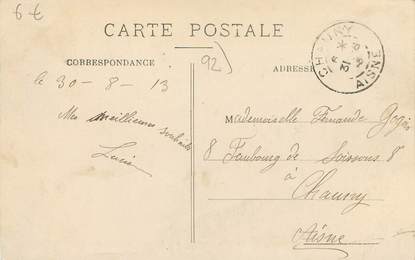 6 €
CARTE POSTALE
CORRESPONDANCE
92
ADRESSE
CHAUNY
AISNE
le 30 - 8 - 13
Mes meilleurs souhaits
Lucie
Mademoiselle Fernande
8 Faubourg de Soissons 8
à
Chauny
Aisne